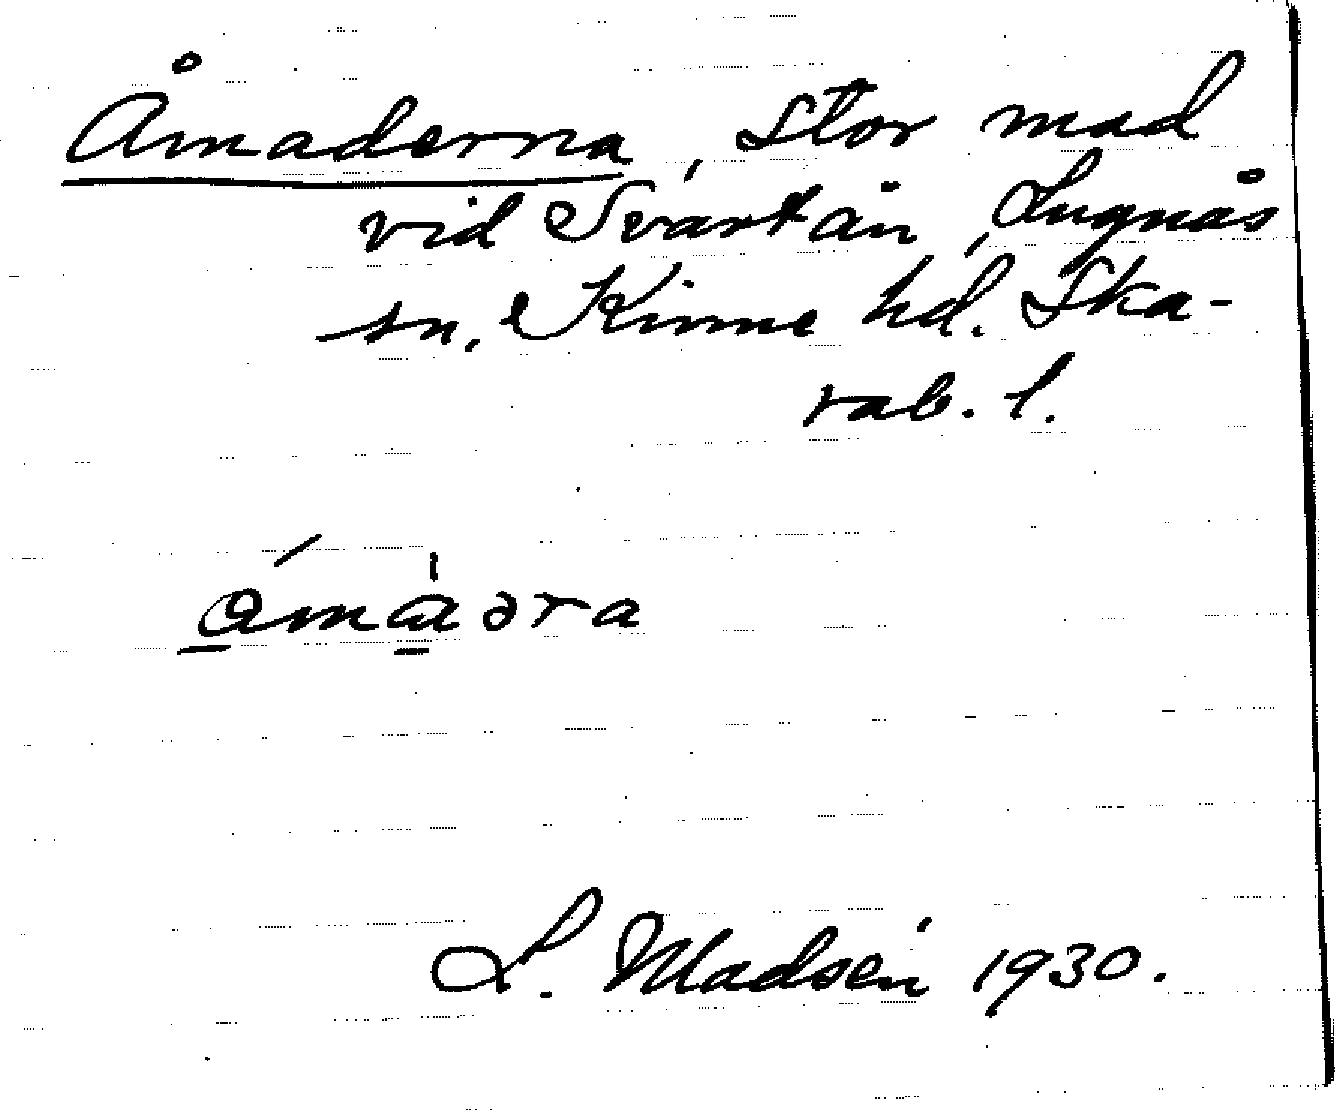 Åmaderna, stor mad
vid Svartån, Lugnås
sn, Kinne hd. Ska-
rab. l.
åmàəra
L. Madsén 1930.